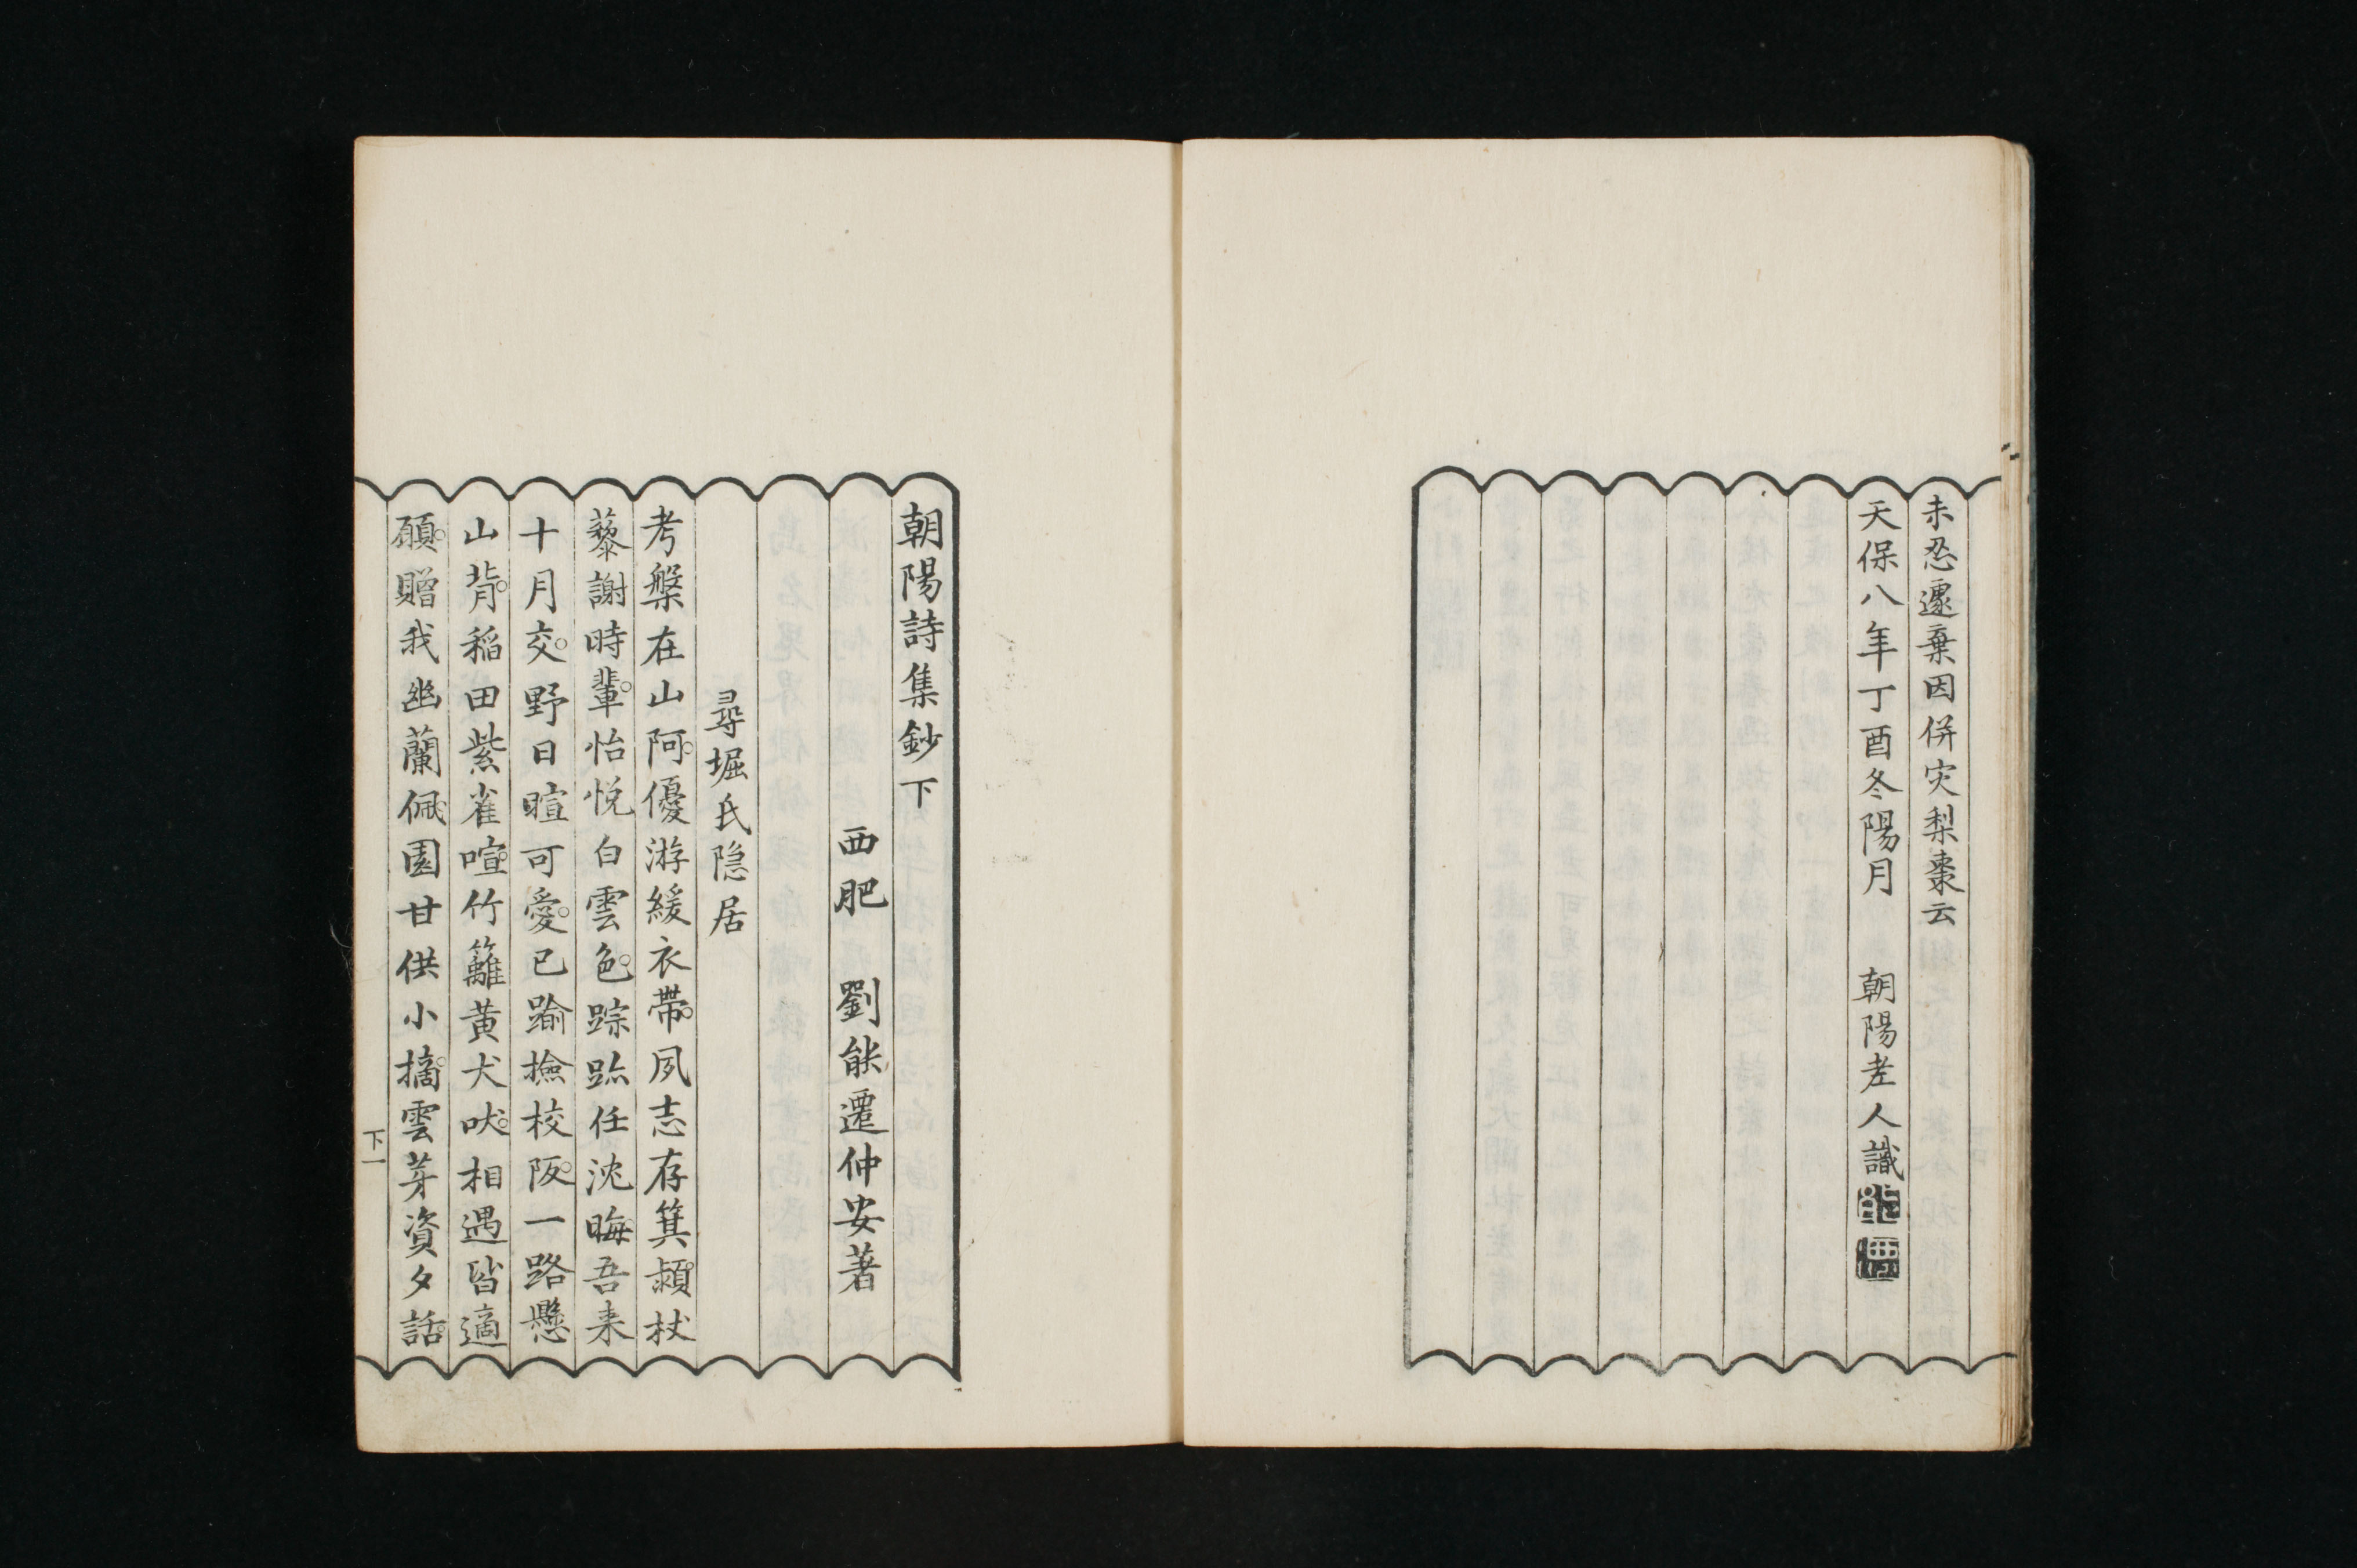 未忍遽棄因併灾梨棗云
天保八年丁酉冬陽月 朝陽老人識
朝陽詩集鈔下
西肥 劉能遷仲安著
尋堀氏隐居
考槃在山阿優游緩衣帶夙志存箕潁杖
藜謝時輩怡悅白雲色踪跡任沈晦吾来
十月交野日暄可愛已踰撿校阪一路懸
山背稻田紫雀喧竹籬黃犬吠相遇皆適
願贈我幽蘭佩園甘供小摘雲芽資夕話
下一